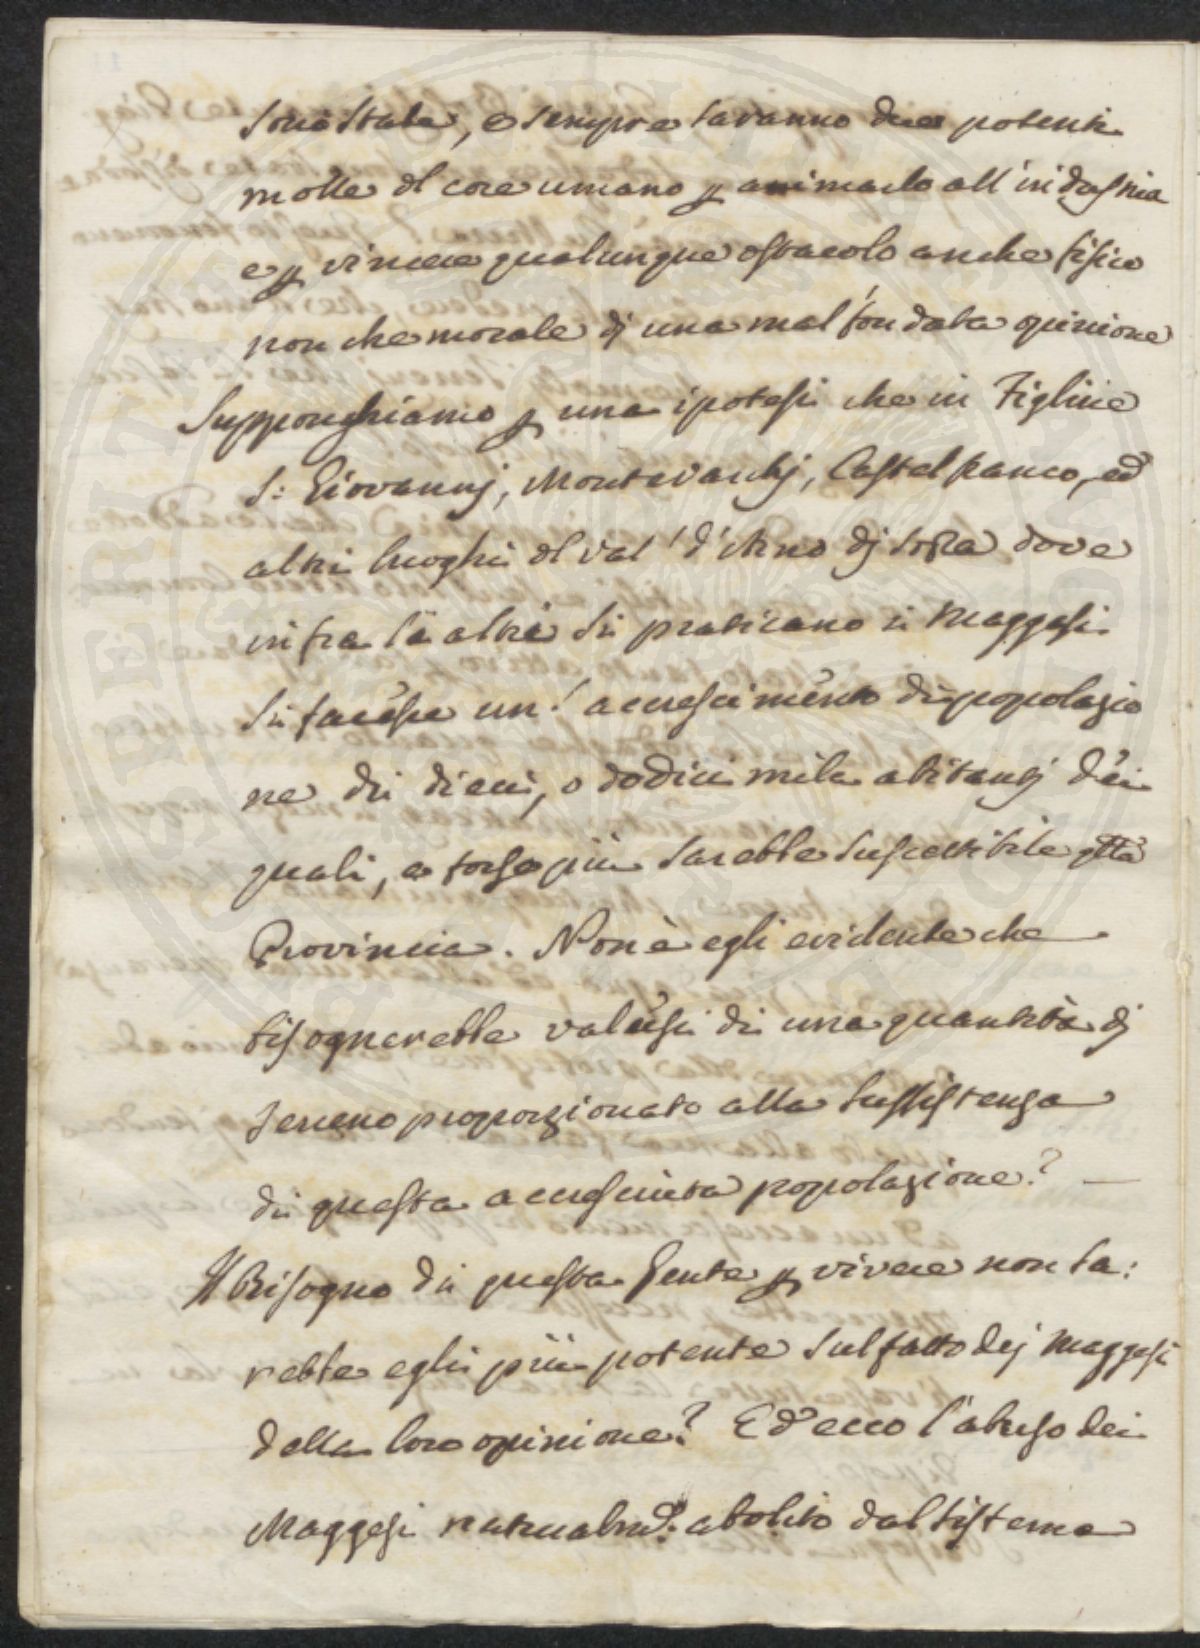 sono State, e sempre saranno due potenti
molle dl core umano p animarlo all' industria
e p vincere qualunque ostacolo anche fisico
non che morale dj una mal' fondata opinione
Supponghiamo p una ipotesi che in Figline
S: Giovannj, Montevarchj, Castelfranco, ed
altri luoghi dl Val' d'Arno dj sopra dove
infra la altre si praticano i Maggesi
si facesse un' accrescimento di popolazio
ne di dieci, o dodici mila abitantj dei
quali, e forse più sarebbe suscettibile qtta
Provincia. Non è egli evidente che
bisognerebbe valersi di una quantità dj
terreno proporzionato alla sussistenza
di questa accresciuta popolazione? —
Il Bisogno di questa Gente p vivere non sa:
rebbe egli più potente sul fatto dej Maggesi
della loro opinione? Ed' ecco l'abuso dei
Maggesi naturalmᵉ: abolito dal sistema
SPERITA
PUBLICA